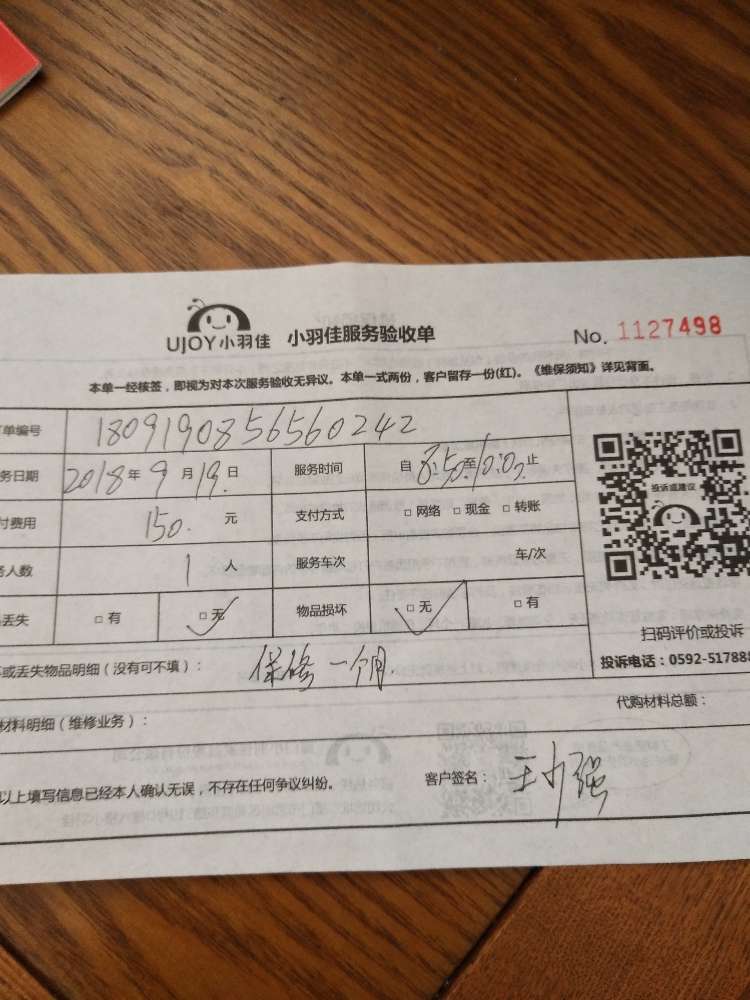 UJOY小羽佳 小羽佳服务验收单 No. 1127498
本单一经核签，即视为对本次服务验收无异议。本单一式两份，客户留存一份(红)。《维保须知》详见背面。
单编号 1809190856560242
务日期 2018年9月19日 服务时间 自8:50至10:00止
付费用 150. 元 支付方式 □网络 □现金 □转账
务人数 1人 服务车次 车/次
丢失 □有 □无 物品损坏 □无 □有
投诉或建议
扫码评价或投诉
投诉电话：0592-517888
或丢失物品明细（没有可不填）： 保修一个月.
代购材料总额：
材料明细（维修业务）：
以上填写信息已经本人确认无误，不存在任何争议纠纷。 客户签名： 王力强